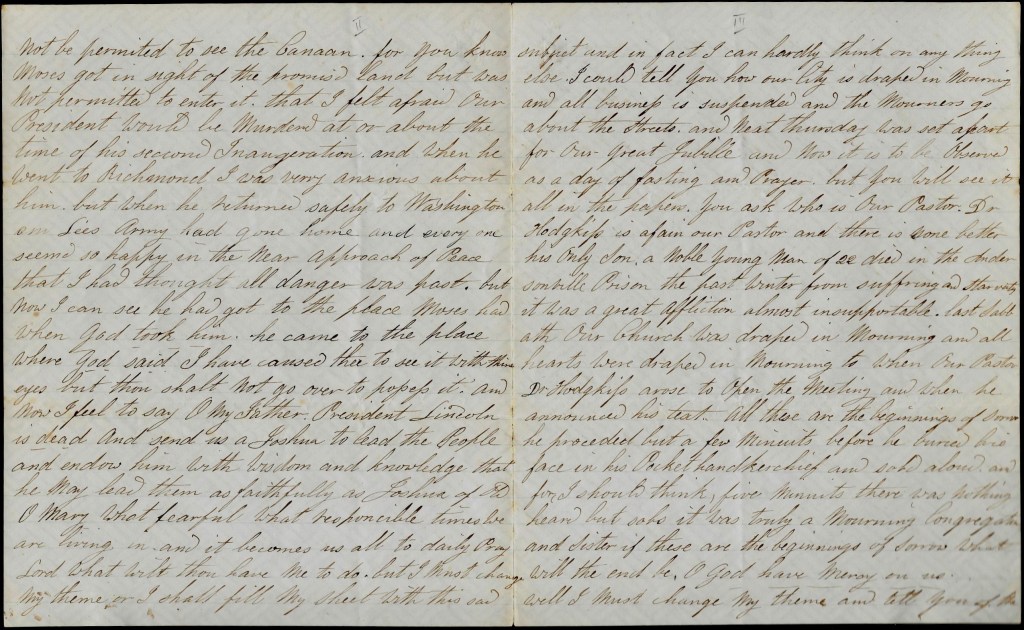 II
Not be permited to see the Canaan. for you know
Moses got in sight of the promisd Land but was
Not permitted to enter it. that I felt afraid Our
President Would be Murderd at or about the
time of his seccond Inaugeration. and when he
went to Richmond I was verry anxious about
him. but when he returned safely to Washington
Lees Army had gone home and every one
seemd so happy in the Near approach of Peace
that I had thought all danger was past. but
Now I can see he had got to the place Moses had
when God took him. he came to the place
where God said I have caused thee to see it with thine
eyes but thou shalt Not go over to posess it. and
Now I feel to say O My Father. President Lincoln
is dead And send us a Joshua to lead the People
and endow him with wisdom and knowledge that
he May lead them as faithfully as Joshua of Old
O Mary what fearful what responcible times we
are living in. and it becomes us all to daily Pray
Lord what wilt thou have Me to do. but I Must change
My theme or I shall fill My sheet with this sad
III
subject and in fact I can hardly think on any thing
else. I could tell you how our City is draped in Mourning
and all business is suspended and the Mourners go
about the streets. and Next thursday was set apart
for Our great Jubille and Now it is to be Observe
as a day of fasting and Prayer. but you will see it
all in the papers. you ask who is Our Pastor. Dr
Hodgkiss is again our Pastor and there is None better
his Only Son. a Noble Young Man of died in the Ander
sonville Prison the past winter from suffring and starvation
it was a great affliction almost insupportable. last Sabb
ath Our Church was draped in Mourning and all
hearts were draped in Mourning to when Our Pastor
Dr Hodgkiss arose to Open the Meeting and when he
announced his text.. All these are the beginnings of sorrow
he proceded but a few Minuits before he buried his
face in his Pockethandkerschief and sobd aloud and
for I should think, five Minuits there was nothing
heard but sobs it was truly a Mourning Congregation
and Sister if these are the beginnings of sorrow What
will the end be. O God have Mercy on us.
well I Must change My theme and tell you of the